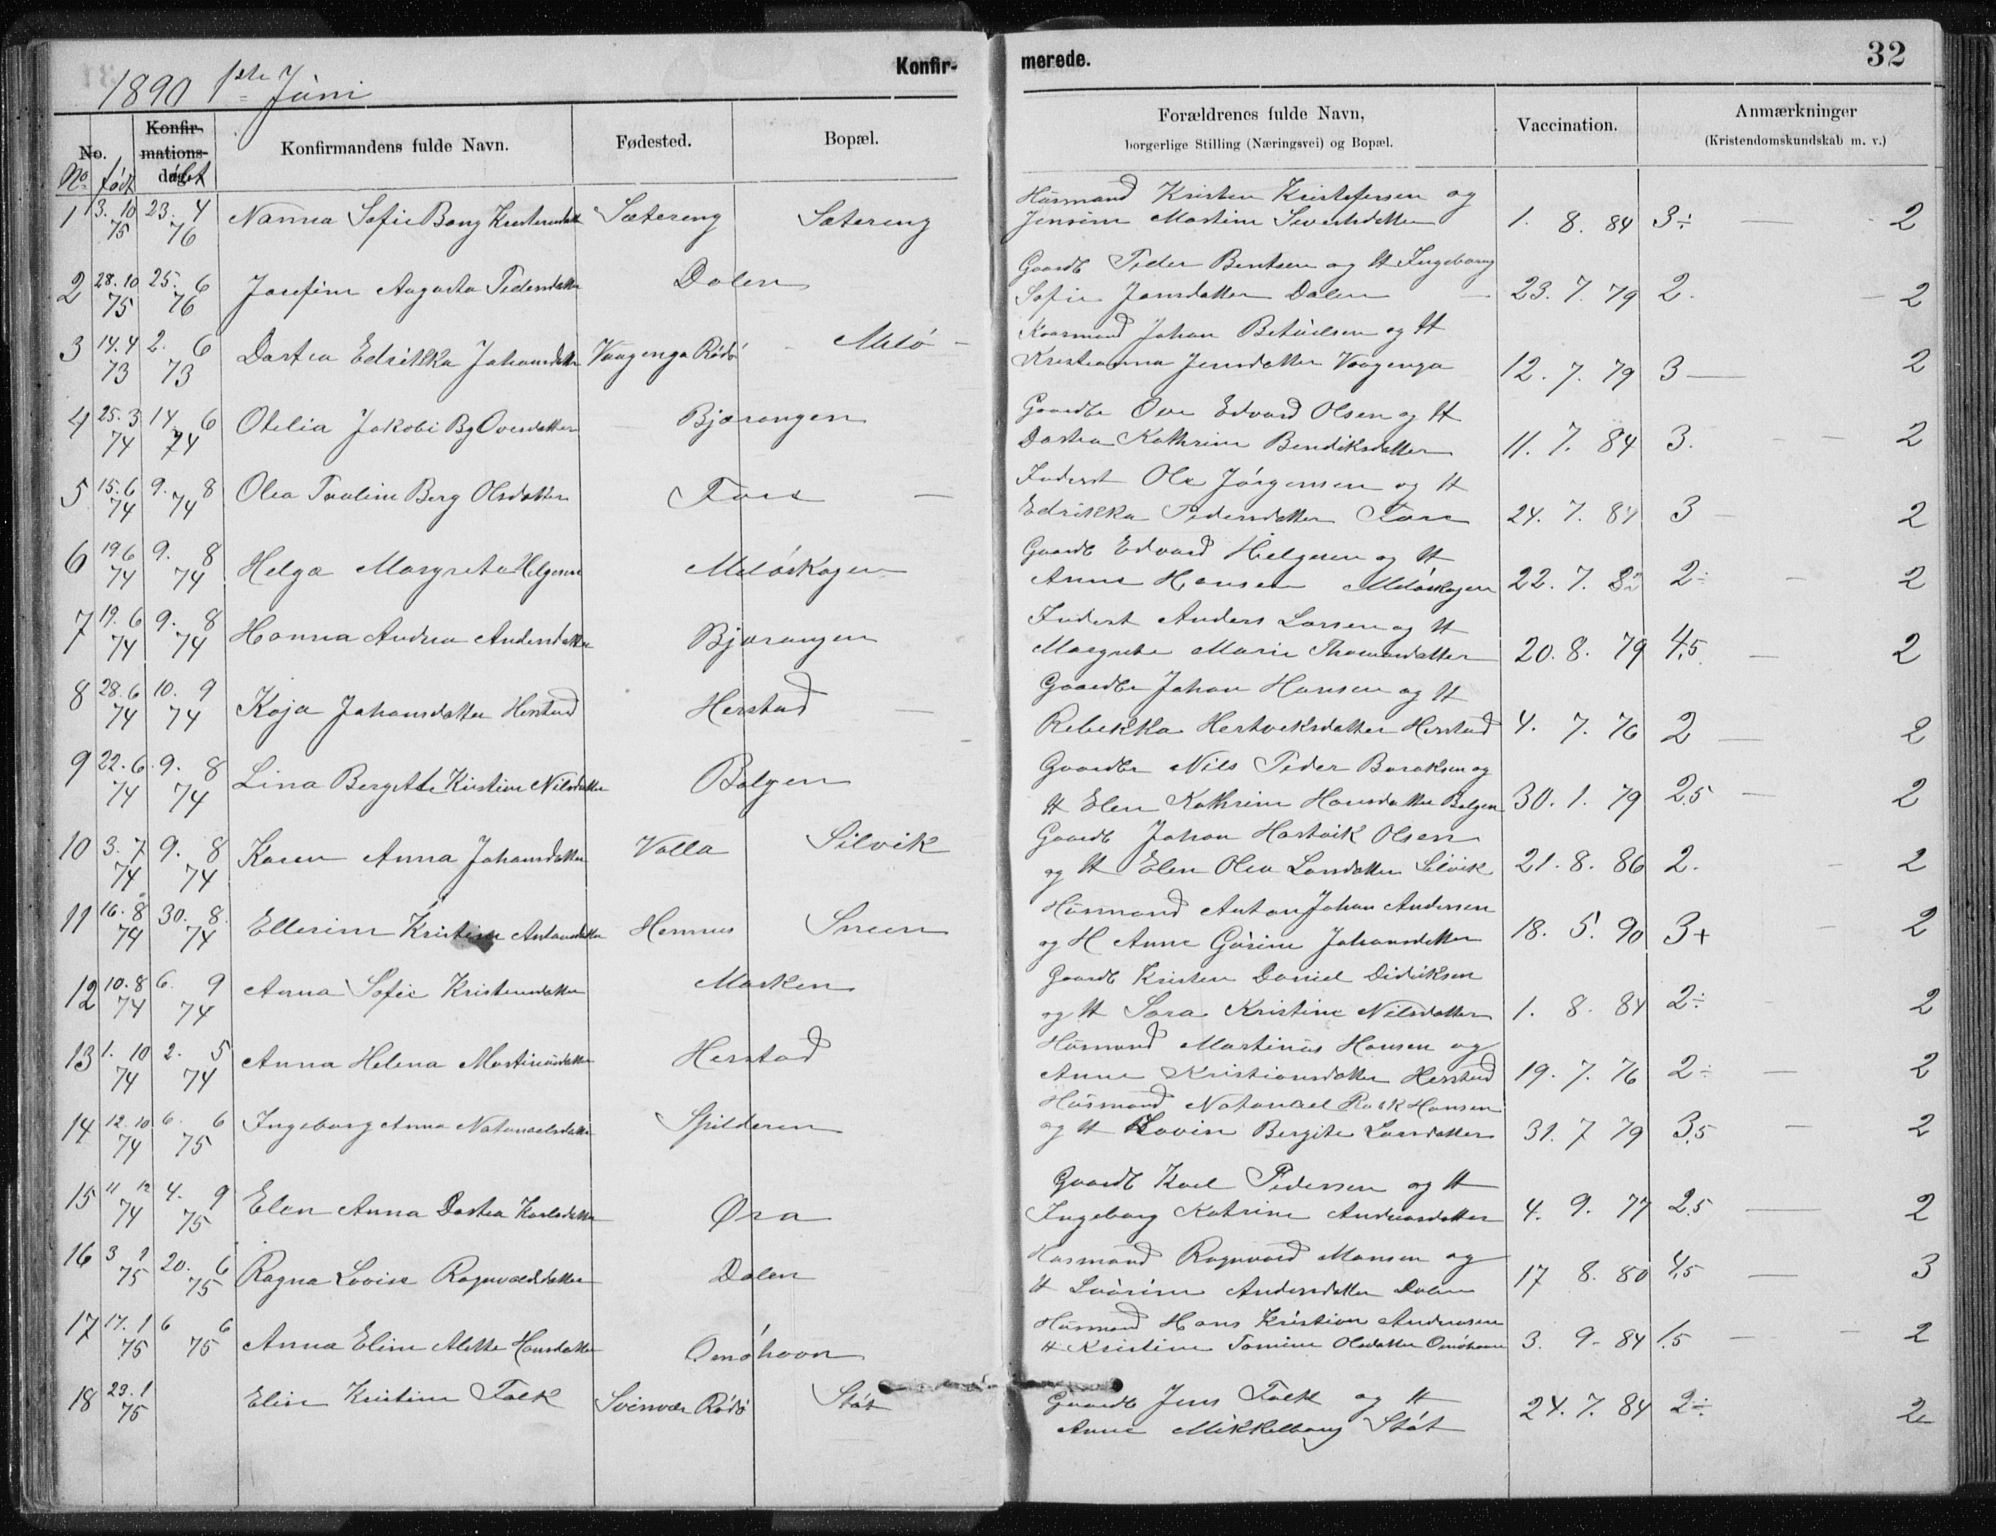 1890 1ste Júni
Konfir-
merede.
32
No.
Konfir-
mations-
dag.
Konfirmandens fulde Navn.
Fødested.
Bopæl.
Forældrenes fulde Navn,
borgerlige Stilling (Næringsvei) og Bopæl.
Vaccination.
Anmærkninger
(Kristendomskundskab m. v.)
No født døbt
1 3. 10 75 23. 4 76 Nanna Sofie Bang Kristensdat Sætereng Sætereng
Húsmand Kristen Kristofersen og
Jensine Martine Sivertsdatter 1. 8. 84 3÷ — 2
2 28. 10 75 25. 6 76 Josefine Augusta Pedersdatter Dalen
Gaardb Peder Bentsen og H Ingeborg
Sofie Jensdatter Dalen 23. 7. 79 2. 2
3 14. 4 73 2. 6 73 Dortea Edrikka Johansdatter Vaagenga Rødø Meló
Húsmand Johan Betúelsen og H
Kristianna Jensdatter Vaagenga 12. 7. 79 3 — 2
4 25. 3 74 14. 6 74 Otelia Jakobi Bg Ovesdatter Bjærangen
Gaardbr Ove Edvard Olsen og H
Dortea Kathrine Bendiksdatter 11. 7. 84 3. 2
5 15. 6 74 9. 8 74 Olea Paaline Berg Olsdatter Fore
Inderst Ole Jørgensen og H
Edrikka Pedersdatter Fore 24. 7. 84 3 2
6 19. 6 74 9. 8 74 Helga Margreta Helgesen Melóskogen
Gaardb Edvard Helgesen og H
Anne Hansen Melóskogen 22. 7. 82 2÷ 2
7 19. 6 74 9. 8 74 Hanna Andrea Andersdatter Bjærangen
Inderst Anders Larsen og H
Margrete Marie Thomasdatter 20. 8. 79 4,5 — 2
8 28. 6 74 10. 9 74 Kaja Johansdatter Herstad Herstad
Gaardbr Johan Hansen og H
Rebekka Hertviksdatter Herstad 4. 7. 76 2 — 2
9 22. 6. 74 9. 8 74 Lina Bergitte Kristine Nilsdatter Bolgen
Gaardbr Nils Peder Baraksen og
H Elen Kathrine Hansdatter Bolgen 30. 1. 79 2,5 — 2
10 3. 7 74 9. 8 74 Karen Anna Johansdatter Valla Silvik
Gaardb Johan Hartvik Olsen
og H Elen Olea Larsdatter Silvik 21. 8. 86 2. 2
11 16. 8 74 30. 8. 74 Ellerine Kristine Antonsdatter Hemnes Sneen
Húsmand Anton Johan Andersen
og H Anne Gúrine Johansdatter 18. 5. 90 3+ 2
12 10. 8 74 6. 9 74 Anna Sofie Kristensdatter Marken
Gaardb Kristen Daniel Didriksen
og H Sara Kristine Nilsdatter 1. 8. 84 2÷ 2
13 1. 10 74 2. 5 74 Anna Helena Martinúsdatter Herstad
Húsmand Martinús Hansen og
Anne Kristiansdatter Herstad 19. 7. 76 2÷ — 2
14 12. 10 74 6. 6 75 Ingeborg Anna Natanaelsdatter Spilderen
Húsmand Natanael Rask Hansen
og H Lovise Bergite Larsdatter 31. 7 79 3,5 — 2
15 11 12 74 4. 9 75 Elen Anna Dortea Karlsdatter Øra
Gaardb Karl Pedersen og H
Ingeborg Katrine Andreasdatter 4. 9. 77 2,5 — 2
16 3 2 75 20. 6 75 Ragna Lovise Ragnvaldsdatter Dalen
Húsmand Ragnvard Monsen og
H Lúúrine Andersdatter Dalen 17 8. 80 4,5 — 3
17 17. 1 75 6 6 75 Anna Eline Alette Hansdatter Omóhavn
Húsmand Hans Kristian Andersen
H Kristine Tomine Olsdatter Omóhavn 3. 9- 84 1,5 — 2
18 23. 1 75 Elise Kristine Falk Svinvær Rødø Stót
Gaardb Jens Falk og H
Anne Mikkelborg Stót 24. 7. 84 2÷. 2